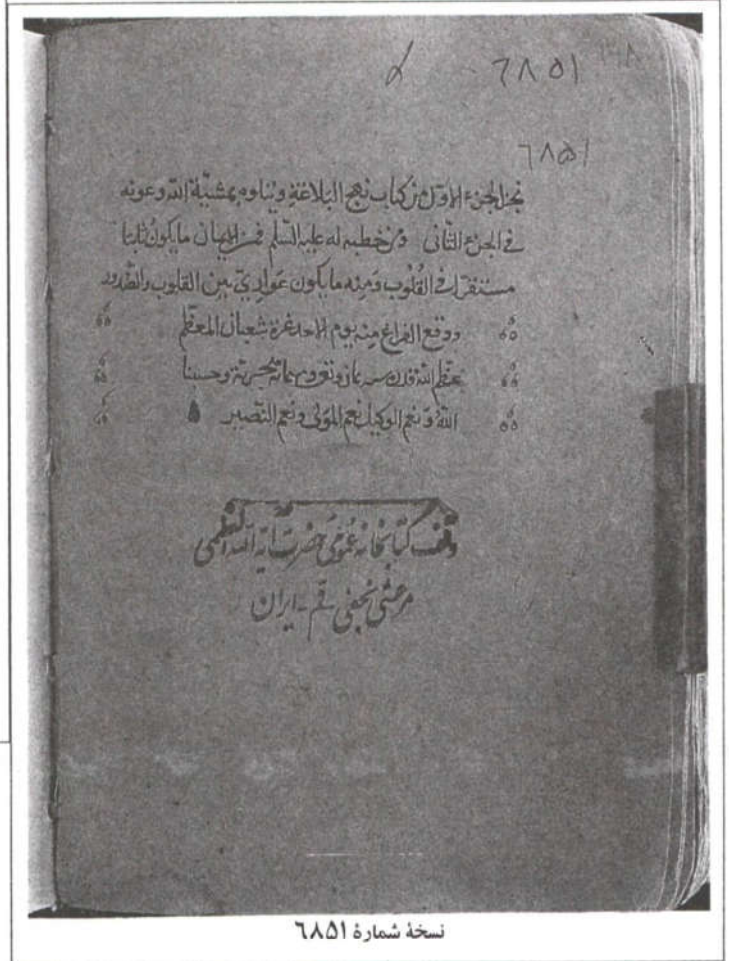 ٦٨٥١
٦٨٥١
نجز الجزء الاول من كتاب نهج البلاغة ويتلوه بمشيّة الله وعونه
في الجزء الثاني ومن خطبه له عليه السّلم فمن الايمان ما يكون ثابتا
مستقرّا في القُلُوب ومنه ما يكون عَوَارِيَ بين القلوب والصّدور
ووقع الفراغ منه يوم الاحد غرة شعبان المعظّم
عظّم الله قدره سنه ثمان وتسعمائة هجريّة وحسبنا
اللهُ ونعم الوكيل نعم المولى ونعم النّصير
وقف كتابخانه عمومی حضرت آیة الله العظمی
مرعشی نجفی - قم - ایران
نسخهٔ شمارهٔ ٦٨٥١